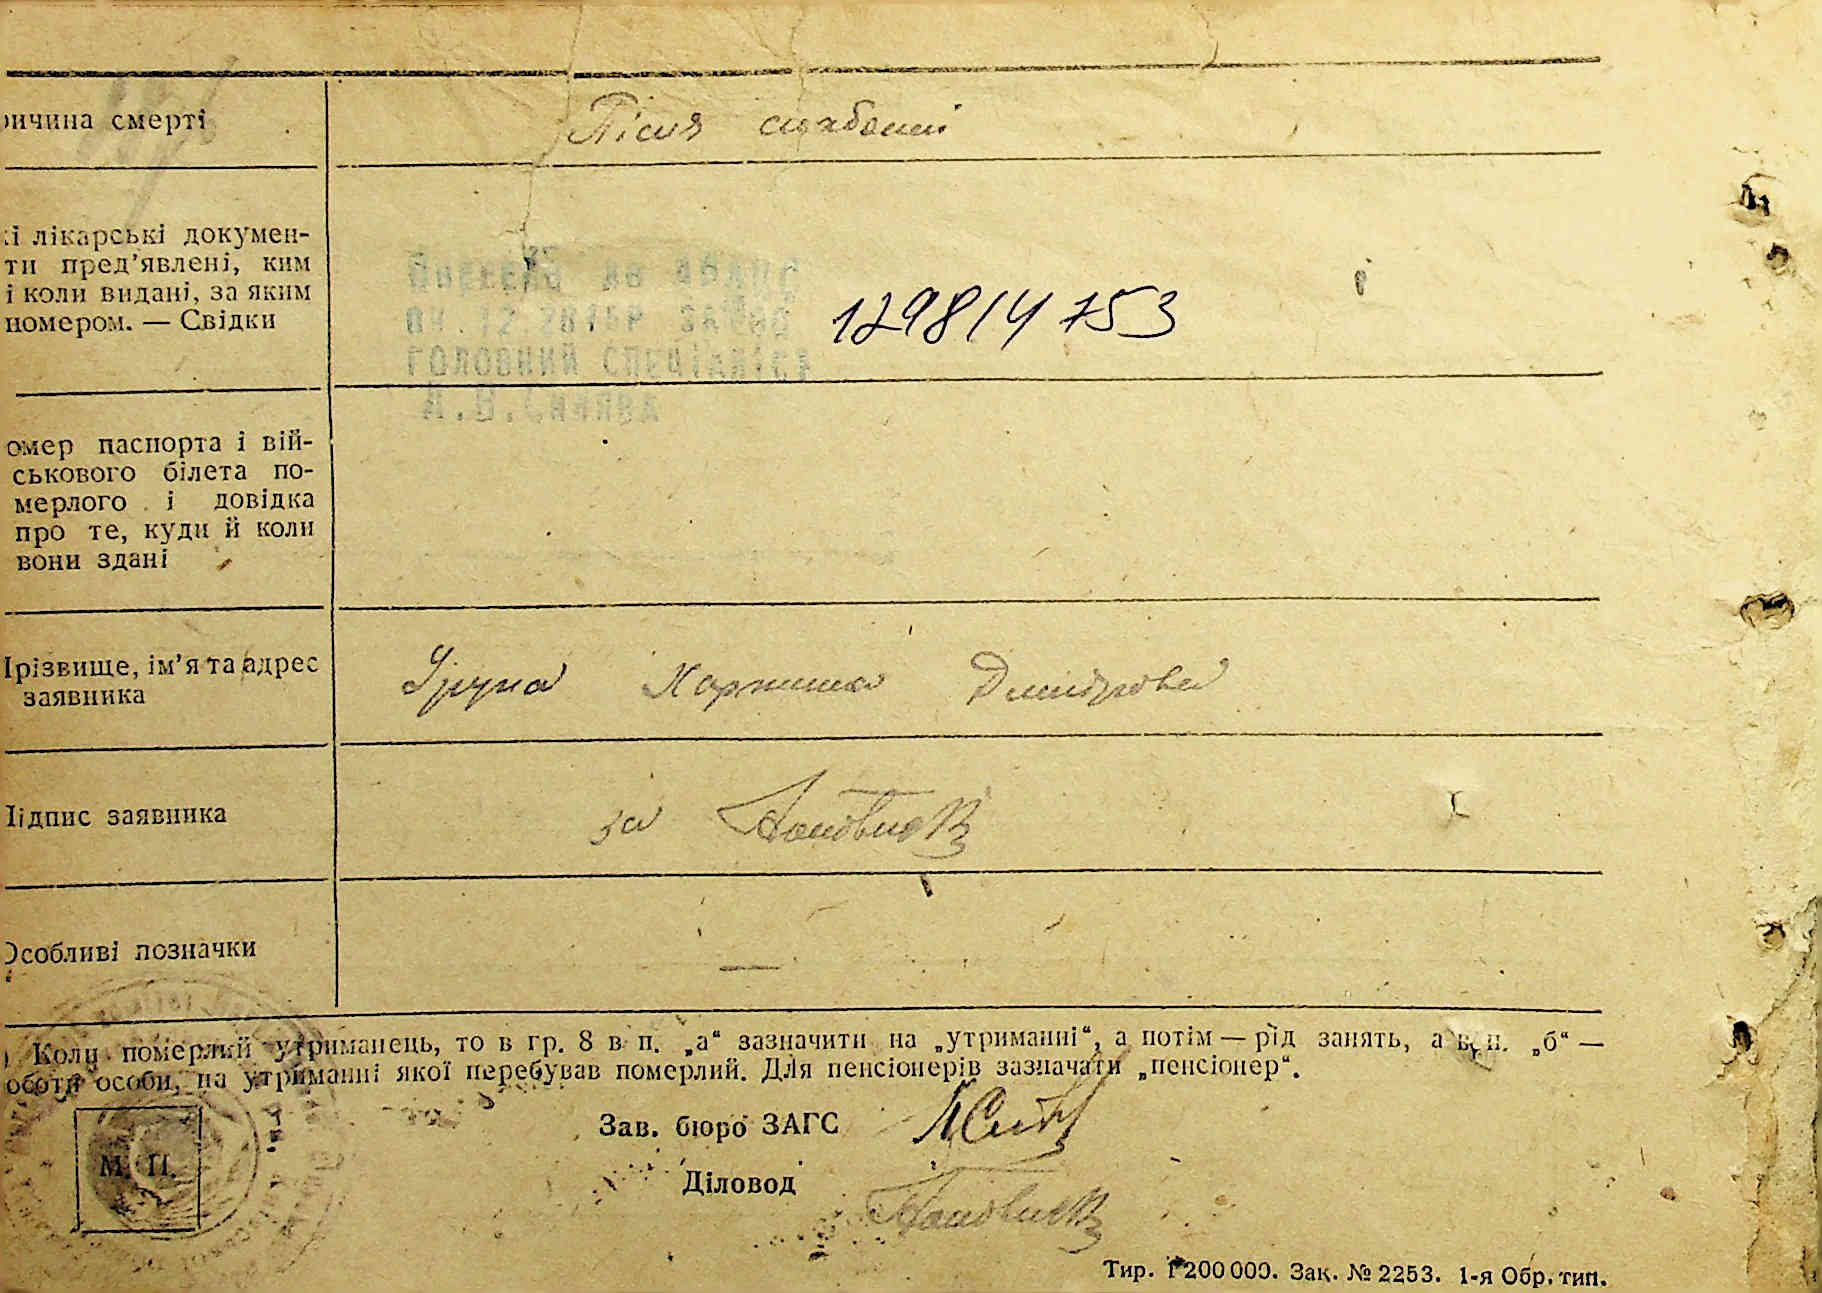 ричина смерті
Після слабости
кі лікарські докумен-
ти пред’явлені, ким
і коли видані, за яким
номером. — Свідки
Внесено до ДРАЦС
12 2015р
ГОЛОВНИЙ СПЕЦІАЛІСТ
129814753
омер паспорта і вій-
ськового білета по-
мерлого і довідка
про те, куди й коли
вони здані
Прізвище, ім’я та адрес
заявника
Дмитрова
Підпис заявника
за
Особливі позначки
—
) Коли померлий утриманець, то в гр. 8 в п. „а“ зазначити на „утриманні“, а потім — рід занять, а в п. „б“ —
оботи особи, на утриманні якої перебував померлий. Для пенсіонерів зазначати „пенсіонер“.
Зав. бюро ЗАГС
М. П.
Діловод
Тир. 1 200 000. Зак. № 2253. 1-я Обр. тип.